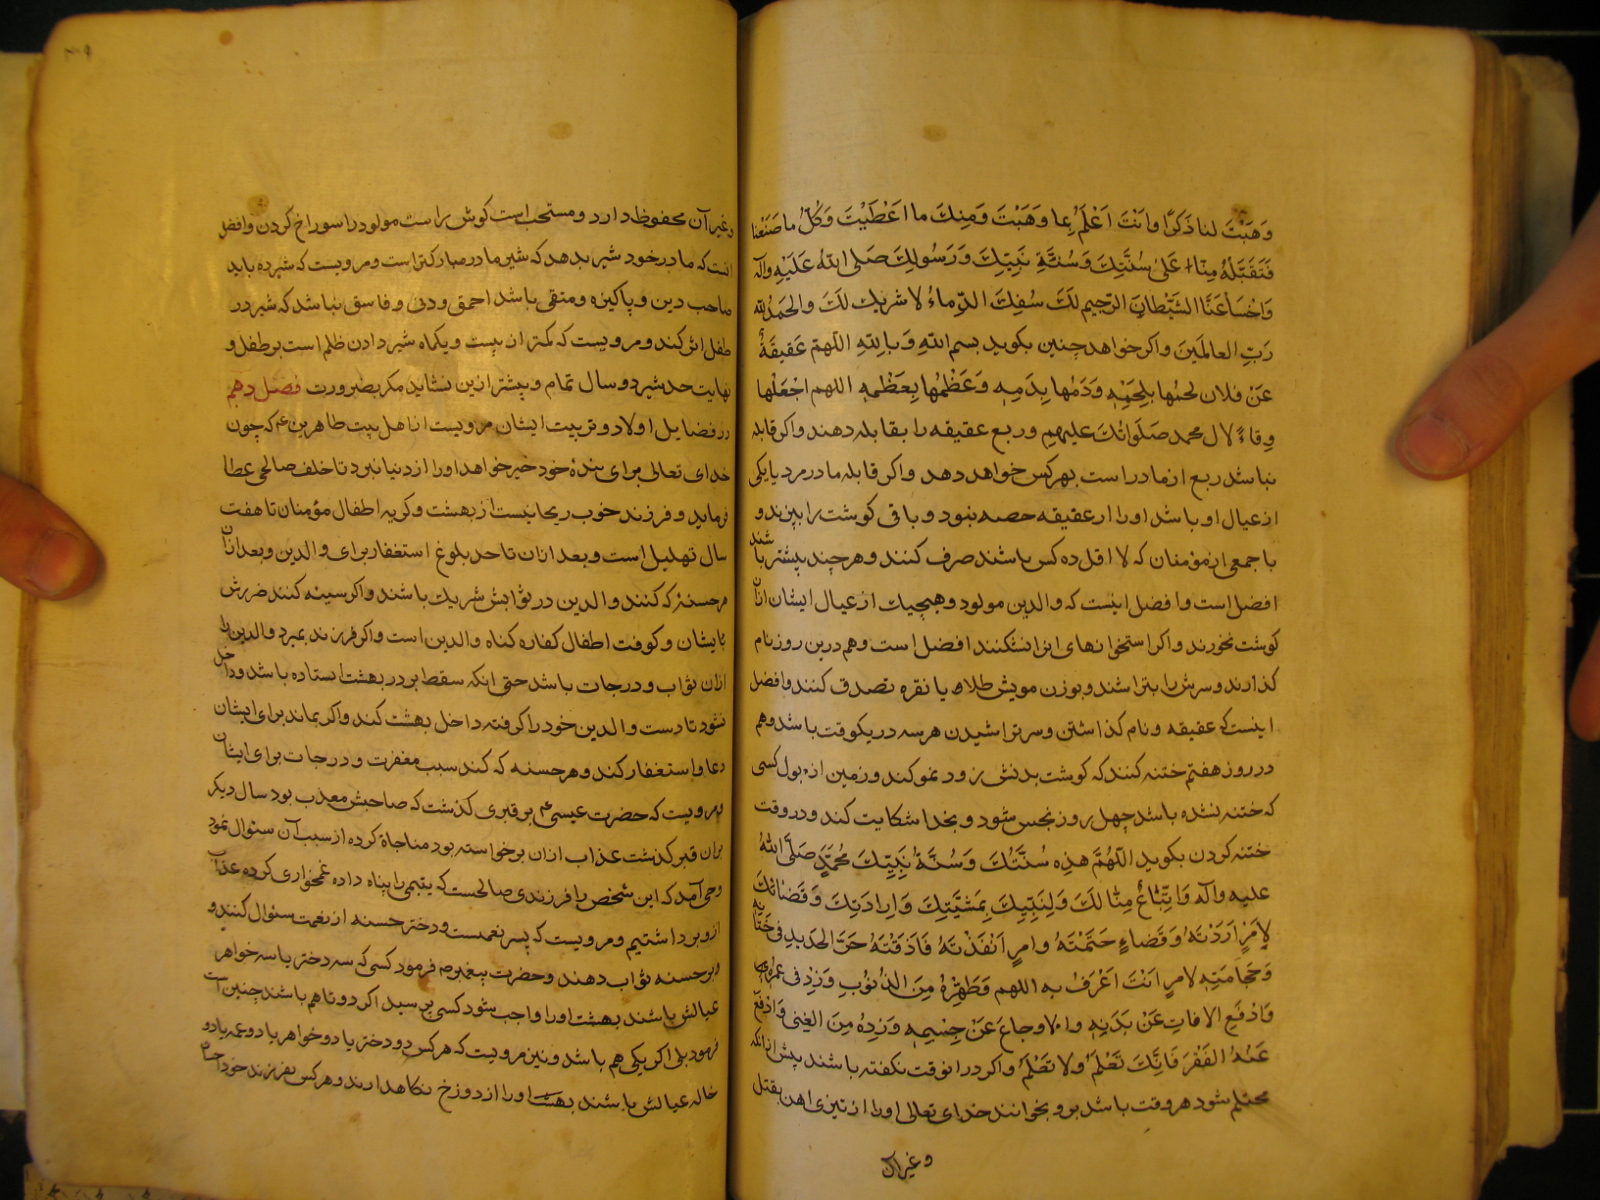 وَهَبْتَ لنا ذَكَرًا وانْتَ اَعْلَمُ بِما وَهَبْتَ وَمِنِكَ ما اَعْطَيْتَ وَكُلّ ما صَنَعْنا
فَتَقَبَّلْهُ مِنّا عَلىٰ سُنَّتِكَ وَسُنَّةِ نَبِيّكَ وَرَسُولِكَ صَلَّى اللهُ عَلَيْهِ وآله
وَاخْسَأ عَنَّا الشَّيْطانَ الرّجيم لَكَ سُفِكَ الدِّماءُ لا شريك لَكَ والحَمْدُ لله
رَبِّ العالَمينَ واكر خواهد چنين بكويد بسم اللهِ وَبا للهِ اللّهمّ عَقيقَةٌ
عَنْ فلان لحمُها بِلَحْمِهِ وَدَمُها بِدَمِهِ وَعَظْمُها بِعَظْمِهِ اللهم اجْعَلْها
وِقاءً لال محمد صَلَواتُكَ عليهم وربع عقيقه را بقابله دهند واكر قابله
نباشد ربع از مادر است بهركس خواهد دهد واكر قابله مادر مرد يا يكى
از عيال او باشد او را از عقيقه حصه نبود و باقى كوشت را بپزند و
با جمعى از مؤمنان كه لا اقل ده كس باشند صرف كنند وهر چند بيشتر باشند
افضل است وافضل اينست كه والدين مولود وهيچيك از عيال ايشان ازان
كوشت نخورند واكر استخوانهاى انرا نشكنند افضل است وهم درين روز نام
كذارند وسرش را بتراشند وبوزن مويش طلا يا نقره تصدق كنند وافضل
اينست كه عقيقه ونام كذاشتن وسر تراشيدن هر سه در يكوقت باشد وهم
در روز هفتم ختنه كنند كه كوشت بدنش زود نمو كند وزمين از بول كسى
كه ختنه نشده باشد چهل روز نجس شود وبخدا شكايت كند ودر وقت
ختنه كردن بكويد اللّهُمَّ هذِه سُنَّتُكَ وَسُنَّةُ نَبِيِّكَ مُحَمَّدٍ صَلَّى اللهُ
عليه وآله وَاتِّباعٌ مِنّا لَكَ وَلِنَبِيِّكَ بِمَشِيَّتِكَ وَاِرادَتِكَ وَقَضائِكَ
لِاَمْرٍ اَرَدْتَهُ وَقَضاءٍ حَتَمْتَهُ وامرٍ اَنْفَذْتَهُ فَاَذَقْتَهُ حَرَّ الحَديدِ فى خَتانِه
وَحَجامَتِهِ لامرٍ اَنْتَ اَعْرَفُ به اللهم فَطَهِّرْهُ مِنَ الذُنُوبِ وَزِدْ فى عمره
وَادْفَعِ الافاتِ عَنْ بَدَنِهِ والاوجاعَ عَنْ جِسْمِه وَزِدْهُ مِنَ الغِنى وَادْفَعْ
عَنْهُ الفَقْرَ فَاِنَّكَ تَعْلَمُ ولا نَعْلَمُ واكر درانوقت نكفته باشند پيش ازانكه
محتلم شود هر وقت باشد برو بخوانند خداى تعالى او را از تيزى اهن بقتل
وغيرآن
وغيرآن محفوظ دارد ومستحب است كوش راست مولود را سوراخ كردن وافضل
انست كه مادر خود شير بدهد كه شير مادر مباركتر است ومرويست كه شيرده بايد
صاحب دين و پاكيزه ومتقى باشد احمق ودنى وفاسق نباشد كه شير در
طفل اثر كند ومرويست كه كمتر از بيست ويكماه شير دادن ظلم است بر طفل و
نهايت حد شير دو سال تمام وبيشتر ازين نشايد مكر بضرورت فصل دهم
در فضايل اولاد وتربيت ايشان مرويست از اهل بيت طاهرين ع كه چون
خداى تعالى براى بندهٔ خود خير خواهد او را از دنيا نبرد تا خلف صالحى عطا
فرمايد وفرزند خوب ريحانيست از بهشت وكريه اطفال مؤمنان تا هفت
سال تهليل است وبعد ازان تا حد بلوغ استغفار براى والدين وبعد ازان
هر حسنهٔ كه كنند والدين در ثوابش شريك باشند واكر سيئه كنند ضررش
بايشان وكوفت اطفال كفاره كناه والدين است واكر فرزند بميرد والدين را
ازان ثواب ودرجات باشد حتى انكه سقط بر در بهشت ايستاده باشد وداخل
نشود تا دست والدين خود را كرفته داخل بهشت كند واكر بماند براى ايشان
دعا واستغفار كند وهر حسنه كه كند سبب مغفرت ودرجات براى ايشان
ومرويست كه حضرت عيسى ع بر قبرى كذشت كه صاحبش معذب بود سال ديكر
بران قبر كذشت عذاب ازان برخواسته بود مناجاة كرده از سبب آن سئوال نمود
وحى آمد كه اين شخص را فرزندى صالحست كه يتيمى را پناه داده غمخوارى كرده عذاب
ازو برداشتيم ومرويست كه پسر نعمتست ودختر حسنه از نعمت سئوال كنند و
وبر حسنه ثواب دهند وحضرت پيغمبر ص فرمود كسى كه سه دختر يا سه خواهر
عيالش باشند بهشت او را واجب شود كسى پرسيد اكر دو تا هم باشند چنين است
فرمود بلى اكر يكى هم باشد ونيز مرويست كه هر كس دو دختر يا دو خواهر يا دو عمه يا دو
خاله عيالش باشند بهشت او را از دوزخ نكاهدارند وهر كس بفرزند خود